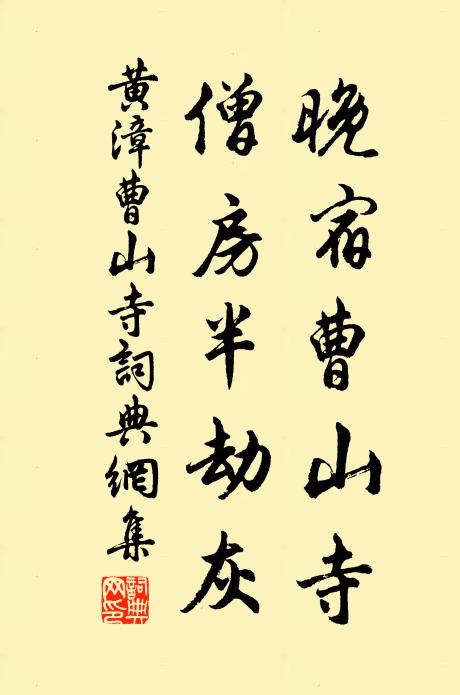 晚宿曹山寺
僧房半劫灰
黄漳曹山寺詞典網集
詞典
网印